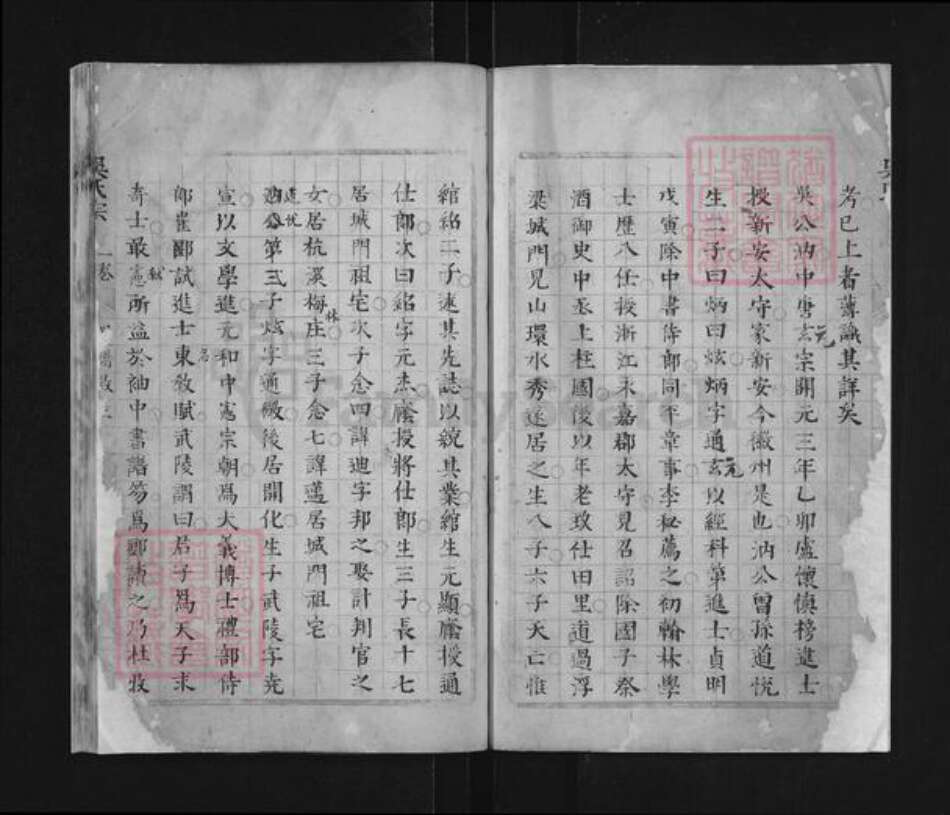 考已上者薄識其詳矣
吳公汭中唐玄宗開元三年乙卯盧懷慎榜進士
元
授新安太守家新安今徽州是也汭公曾孫道悅
生二子曰炳曰炫炳字通玄以經科第進士貞明
元
戊寅除中書侍郎同平章事李秘薦之初翰林學
士歷八任授浙江永嘉郡太守見召詔除國子祭
酒御史中丞上柱國後以年老致仕田里道過浮
梁城門見山環水秀遂居之生八子六子天亡惟
綰紹二子述其先誌以競其業綰生元顯廕授通
仕郎次曰紹字元杰廕授將仕郎生三子長十七
居城門祖宅次子念四諱迪字邦之娶計判官之
女居杭溪梅庄三子念七諱藎居城門祖宅
林
公第三子炫字通微後居開化生子武陵字堯
道悅
宣以文學進元和中憲宗朝為大義博士禮部侍
郎崔郾試進士東教賦武陵謂曰君子為天子求
奇士最憲所益於袖中書諸笏為郾讀之乃杜牧
吳氏宗